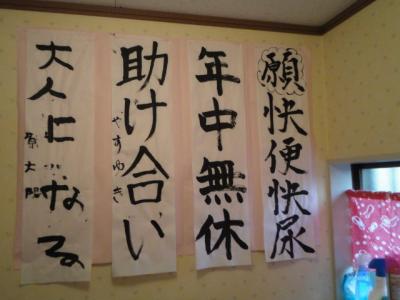 願快便快尿
年中無休
助け合い
やすゆき
大人になる